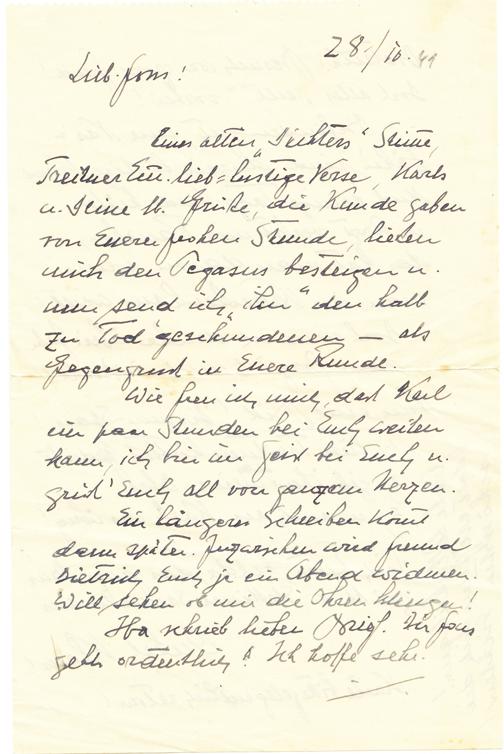 28./10. 49
Lieb. Hons!
Eines alten „Dichters" Stime,
Treitner Eu. lieb-lustige Verse, Karls
u. Deine lb. Grüße, die Kunde gaben
von Euerer frohen Stunde, ließen
mich den Pegasus besteigen u.
nun send ich „ihn" den halb
zu Tod geschundenen — als
Gegengruß in Euere Runde.
Wie freu ich mich, daß Karl
ein paar Stunden bei Euch weilen
kann, ich bin im Geist bei Euch u.
grüß' Euch all von ganzem Herzen.
Ein längeres Schreiben komt
dann später. Inzwischen wird Freund
Dietrich Euch je ein Abend widmen.
Will sehen ob mir die Ohren klingen!
schrieb lieben Brief. Ihr
gehts ordentlich! Ich hoffe sehr.